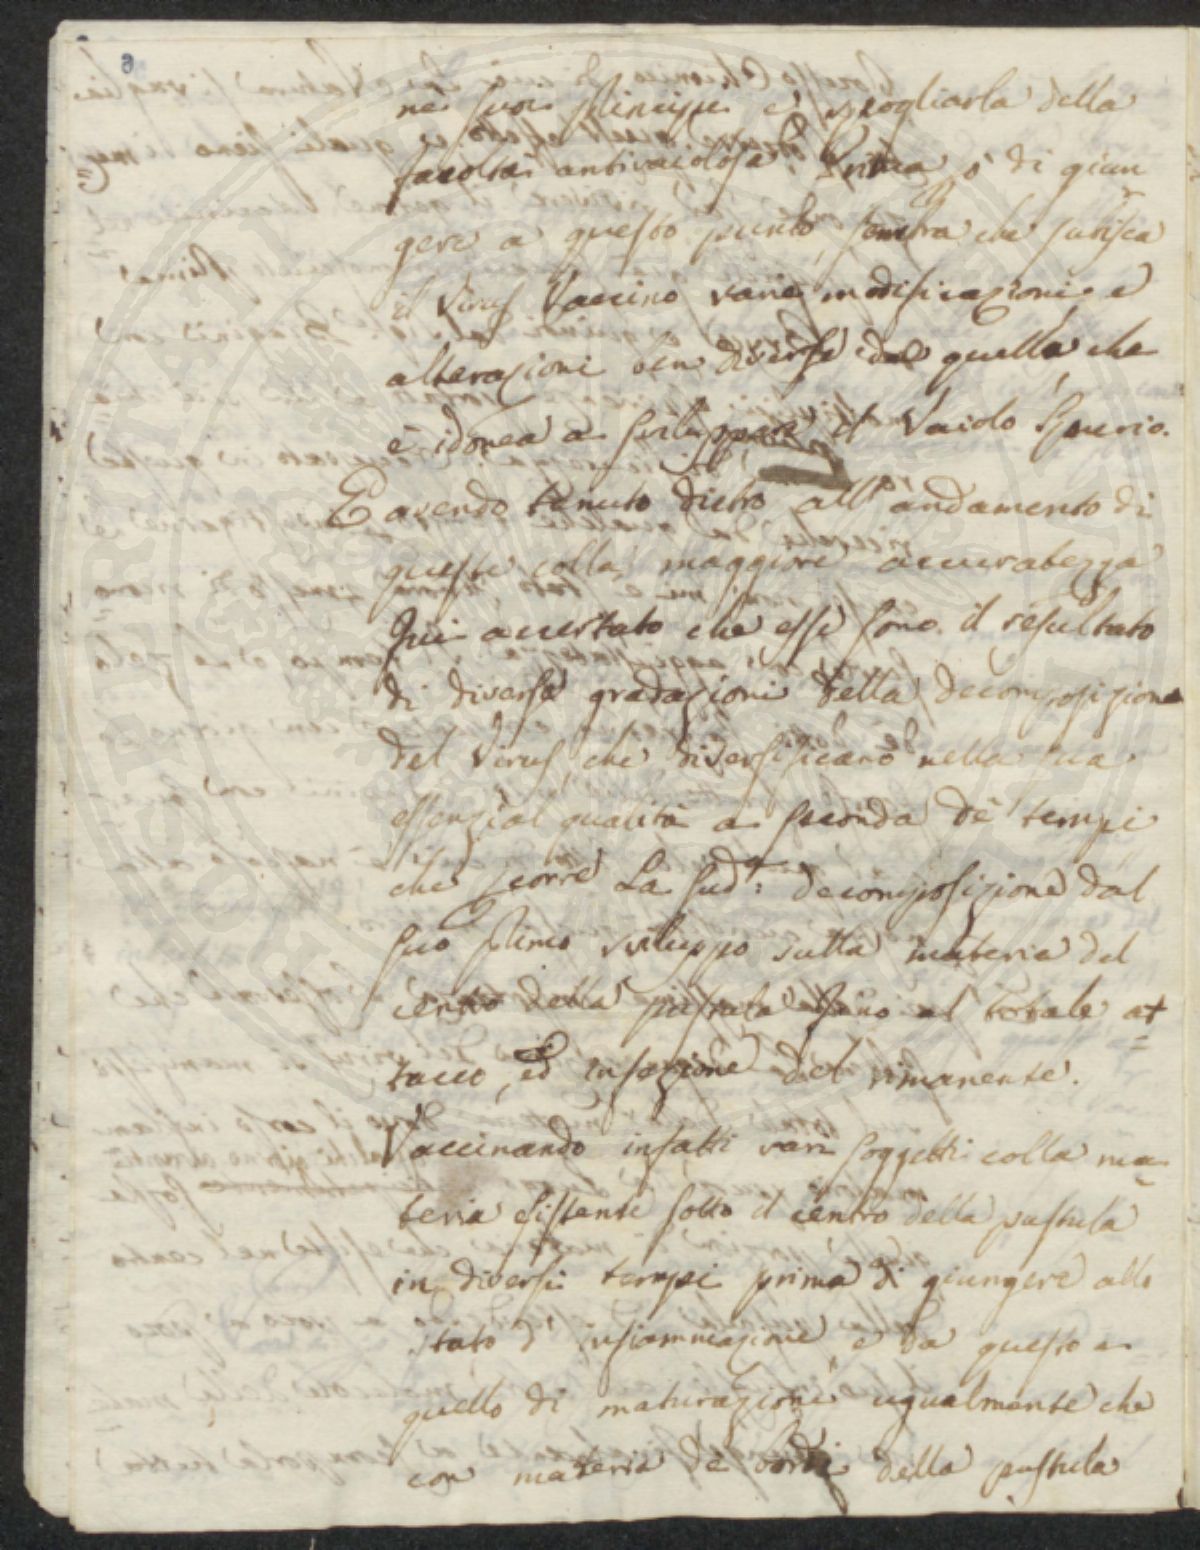 6
ne suoi Principj e spogliarla della
facoltà antivajolosa. Prima però di giun
gere a questo punto sembra che subisca
il Virus Vaccino varie modificazioni e
alterazioni ben diverse da quella che
è idonea a sviluppare il Vaiolo Spurio.
E avendo tenuto dietro all' andamento di
queste colla maggiore accuratezza
fui accertato che esse sono il resultato
di diverse gradazioni della decomposizione
del Virus, che diversificano nella sua
essenzial qualità a seconda de tempi
che scorre La sudᵃ: decomposizione dal
suo Primo sviluppo sulla materia del
centro della pustula fino al totale at
tacco, ed infezione del rimanente.
Vaccinando infatti varj soggetti colla ma
teria esistente sotto il centro della pustula
in diversi tempi prima di giungere allo
stato d' infiammazione e da questo a
quello di maturazione ugualmente che
con materia de bordi della pustula